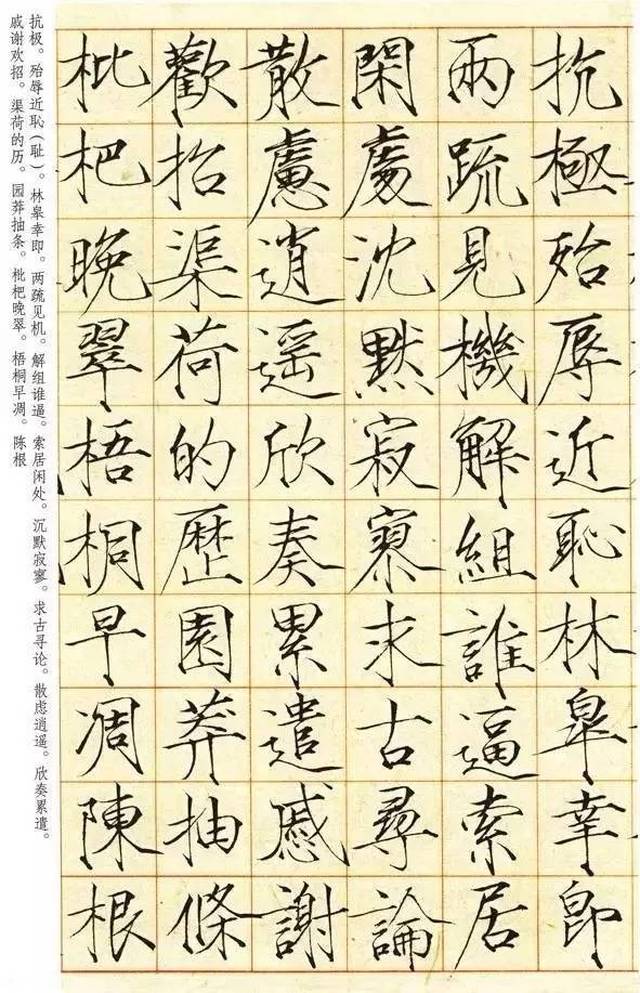 抗極殆辱近恥林皐幸即
兩疏見機解組誰逼索居
閑處沈默寂寥求古尋論
散慮逍遙欣奏累遣慼謝
歡招渠荷的歷園莽抽條
枇杷晚翠梧桐早凋陳根
抗极。殆辱近恥（耻）。林皋幸即。两疏见机。解组谁逼。索居闲处。沉默寂寥。求古寻论。散虑逍遥。欣奏累遣。
戚谢欢招。渠荷的历。园莽抽条。枇杷晚翠。梧桐早凋。陈根